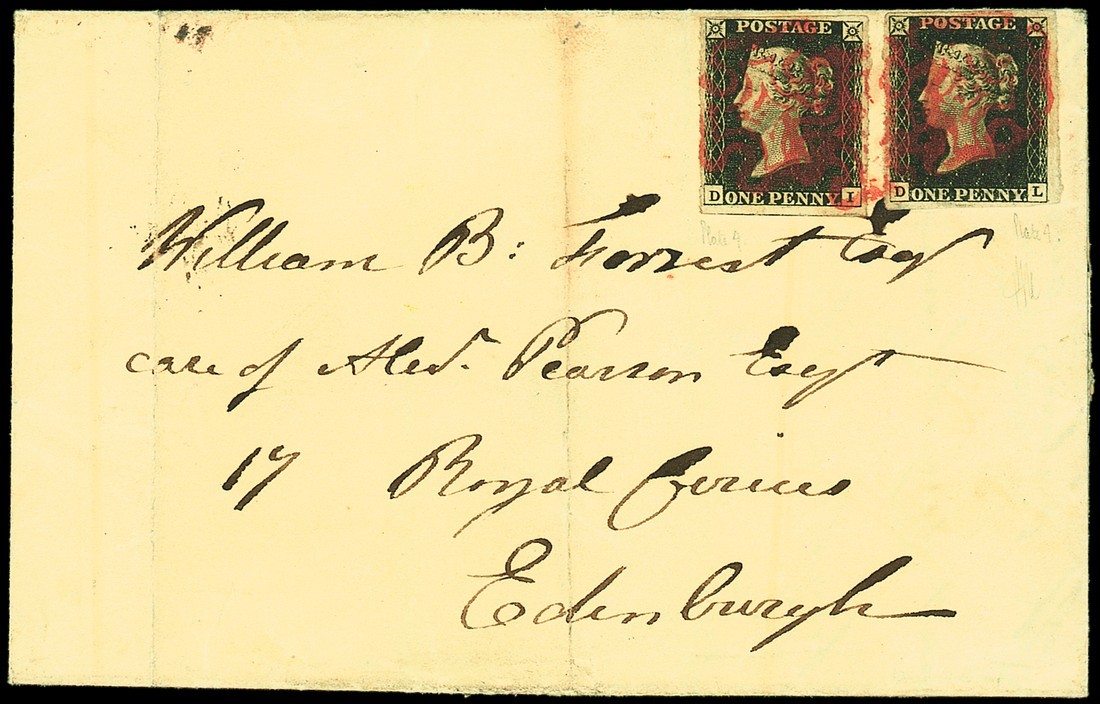 POSTAGE POSTAGE
D ONE PENNY I D ONE PENNY L
Plate 4 Plate 4.
William B: Forrest Esqr
care of Alexr. Pearson Esqr
17 Royal Circus
Edinburgh